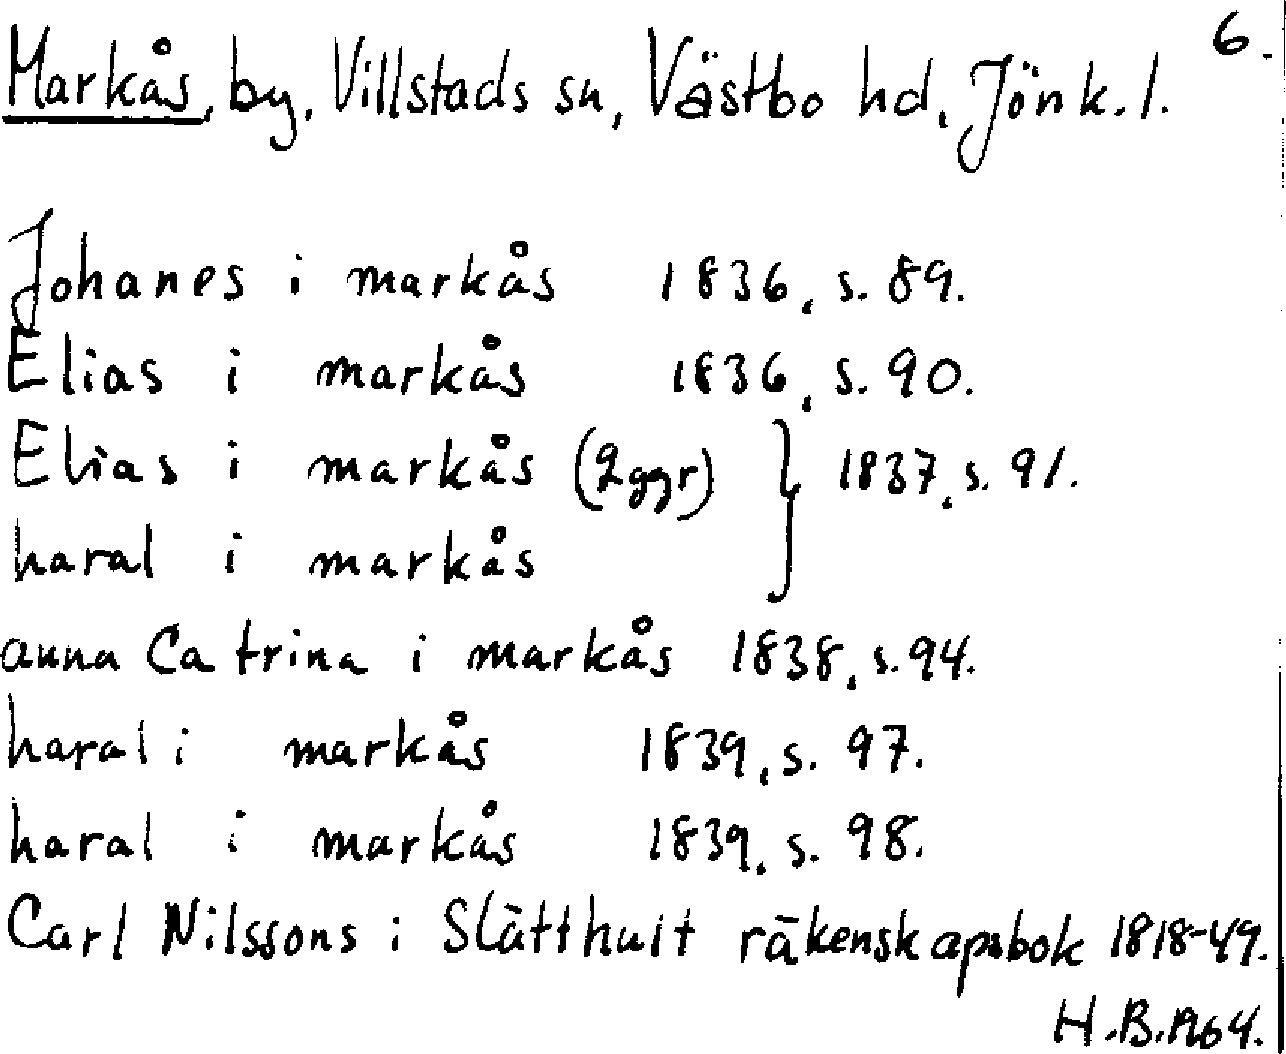 6.
Markås, by, Villstads sn, Västbo hd, Jönk. l.
Johanes i markås 1836, s. 89.
Elias i markås 1836, s. 90.
Elias i markås (2ggr) } 1837, s. 91.
haral i markås
anna Catrina i markås 1838, s. 94.
haral i markås 1839, s. 97.
haral i markås 1839, s. 98.
Carl Nilssons i Slätthult räkenskapsbok 1818-49.
H.B. 1964.